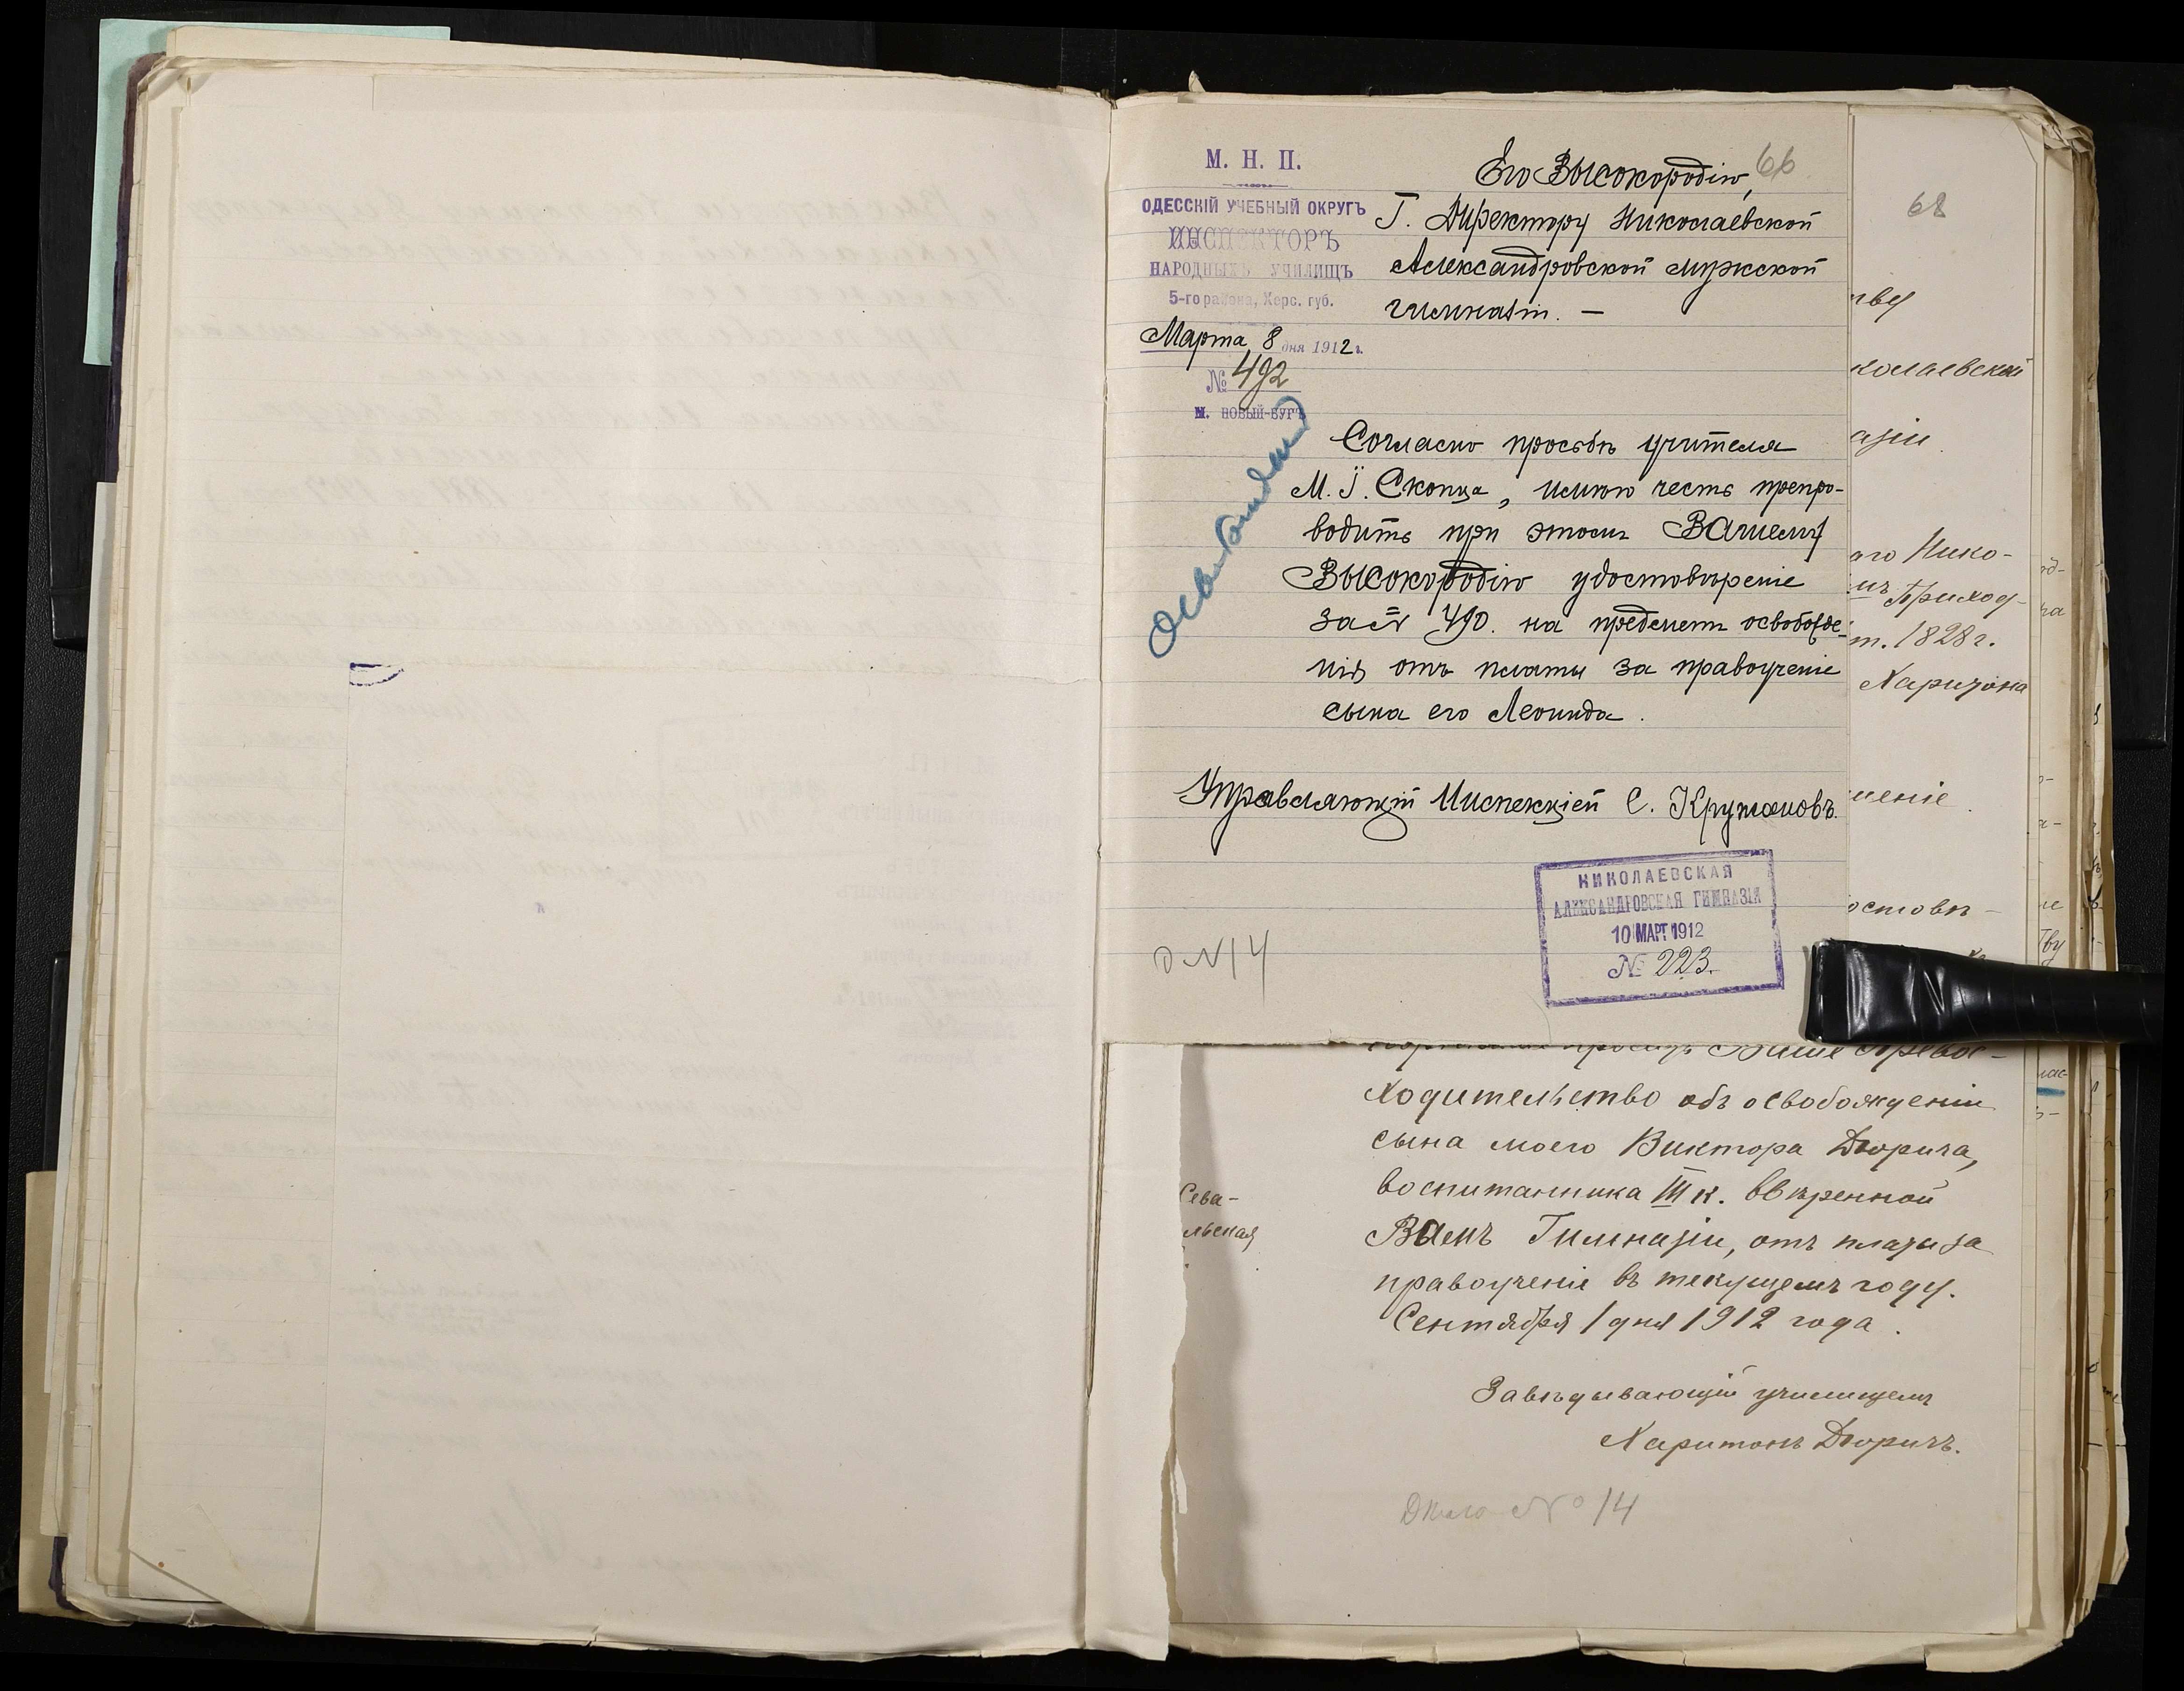 М. Н. П.
ОДЕССКІЙ УЧЕБНЫЙ ОКРУГЪ
ИНСПЕКТОРЪ
НАРОДНЫХЪ УЧИЛИЩЪ
5-го района, Херс. губ.
Марта 8 дня 1912 г.
№ 492
м. НОВЫЙ-БУГЪ
66
Его Высокородію,
Г. Директору Николаевской
Александровской мужской
гимназіи. —
Согласно просьбѣ учителя
М. І. Скопца, имѣю честь препро-
водить при этомъ Вашему
Высокородію удостовѣреніе
за № 490. на предметъ освобожде-
нія отъ платы за правоученіе
сына его Леонида.
Управляющій Инспекціей С.
НИКОЛАЕВСКАЯ
АЛЕКСАНДРОВСКАЯ ГИМНАЗІЯ
10 МАРТ 1912
№ 223.
Д № 14
68
тву
колаевской
азіи
аго Нико-
Приход-
т. 1828 г.
Харитона
шеніе
остовѣ-
Ваше Превос-
ходительство объ освобожденіи
сына моего Виктора Дворича,
воспитанника III к. ввѣренной
Вамъ Гимназіи, отъ платы за
правоученіе въ текущемъ году.
Сентября 1 дня 1912 года.
Сева-
льская
Завѣдывающій училищемъ
Харитонъ Дворичъ.
Дѣло № 14